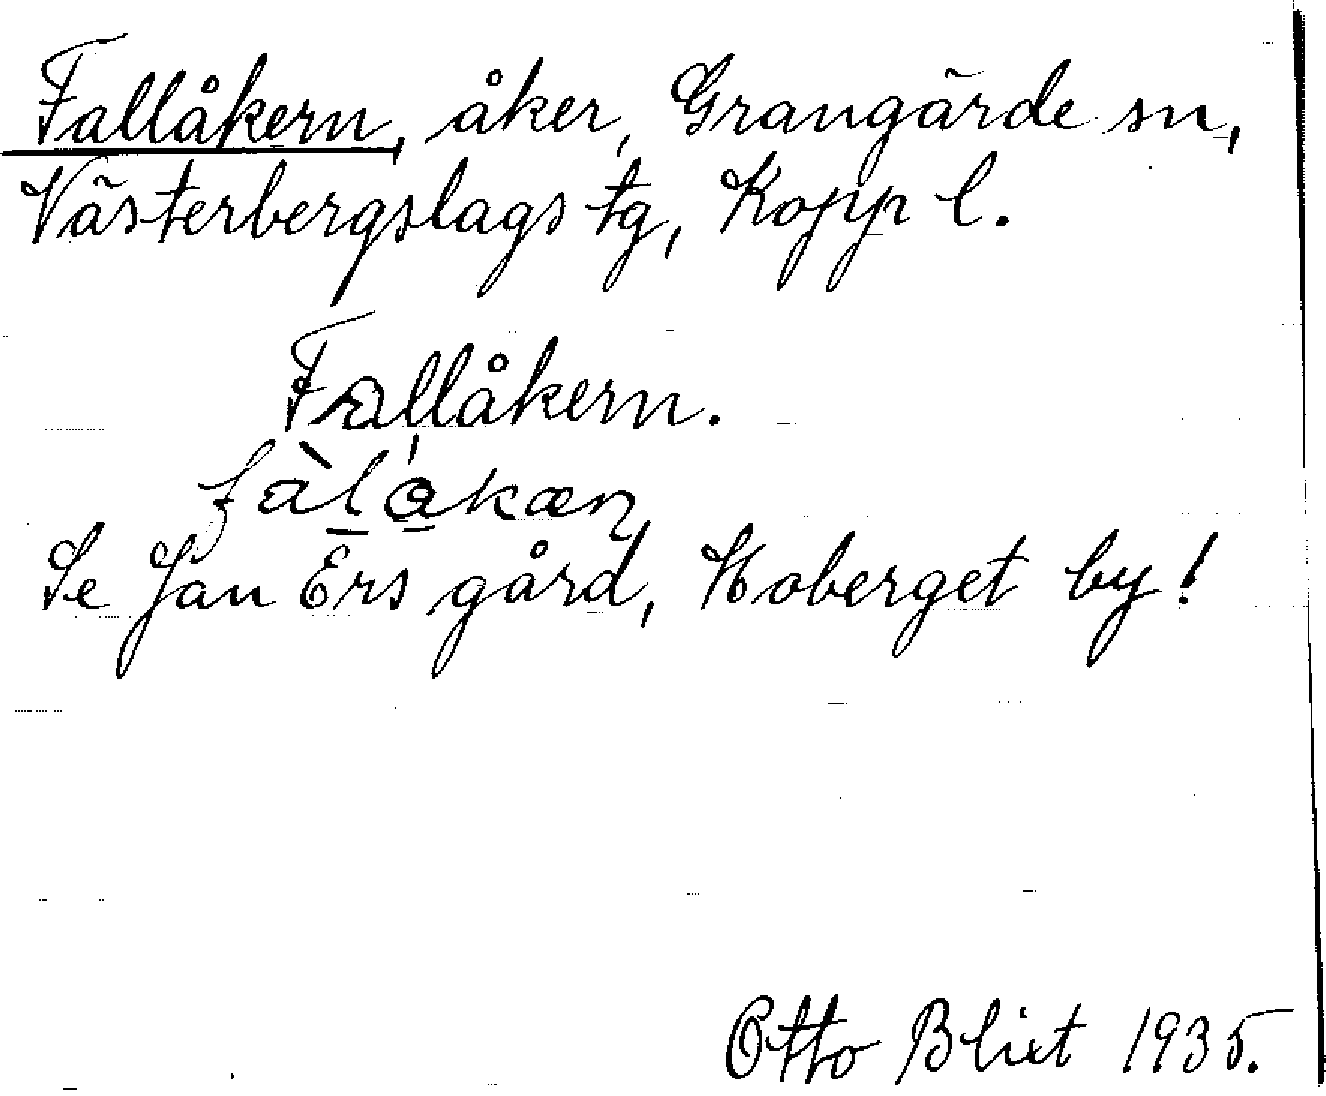 Fallåkern, åker, Grangärde sn,
Västerbergslags tg, Kopp l.
Fallåkern.
fàlåkæn
Se Jan Ers gård, Hoberget by!
Otto Blixt 1935.